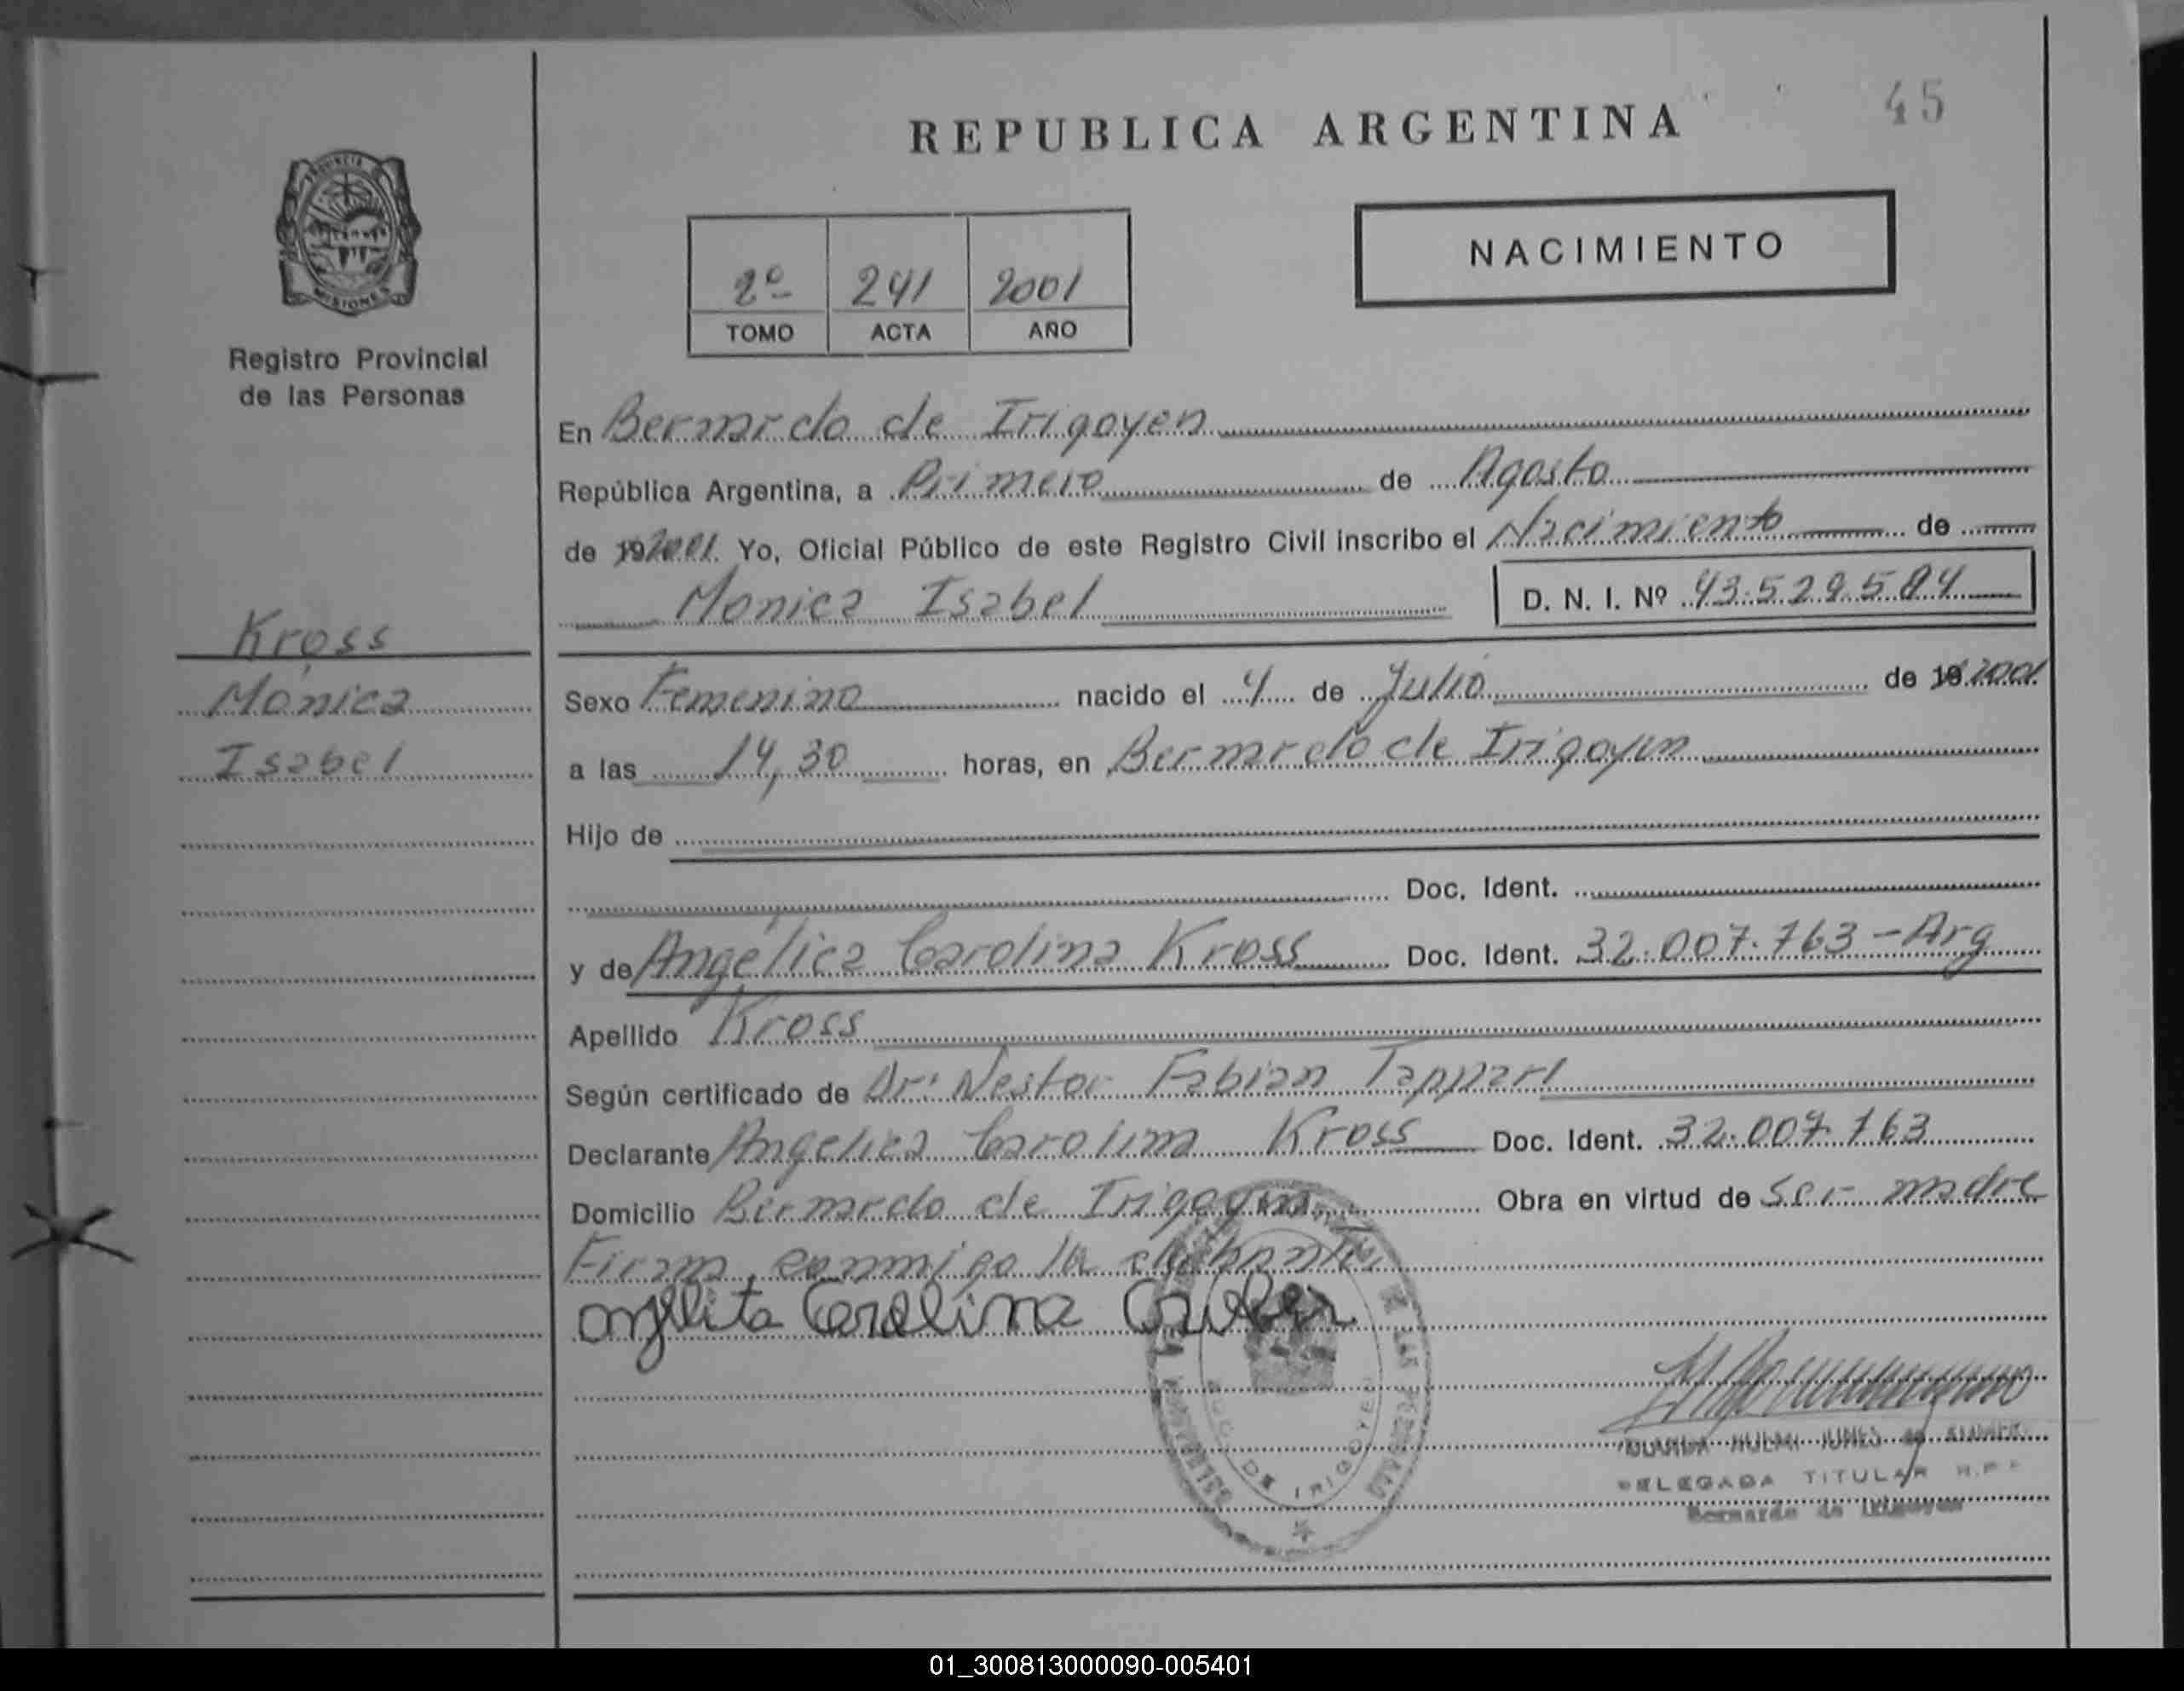 45
REPUBLICA ARGENTINA
NACIMIENTO
PROVINCIA
MISIONES
2º 241 2001
TOMO ACTA AÑO
Registro Provincial
de las Personas
En Bernardo de Irigoyen
República Argentina, a Primero de Agosto
de 192001. Yo, Oficial Público de este Registro Civil inscribo el Nacimiento de
Monica Isabel D. N. I. Nº 43.529.584
Kross
Mónica
Isabel
Sexo Femenino nacido el 4 de Julio de 19 2001
a las 14,30 horas, en Bernardo de Irigoyen
Hijo de
Doc. Ident.
y de Angélica Carolina Kross Doc. Ident. 32.007.763 - Arg
Apellido Kross
Según certificado de Dr: Nestor Fabian Tappari
Declarante Angelica Carolina Kross Doc. Ident. 32.007.763
Domicilio Bernardo de Irigoyen Obra en virtud de Ser madre
Firma conmigo la
Carolina
DE IRIGOYEN
DELEGADA TITULAR R.P.P.
Bernardo de Irigoyen
01_300813000090-005401